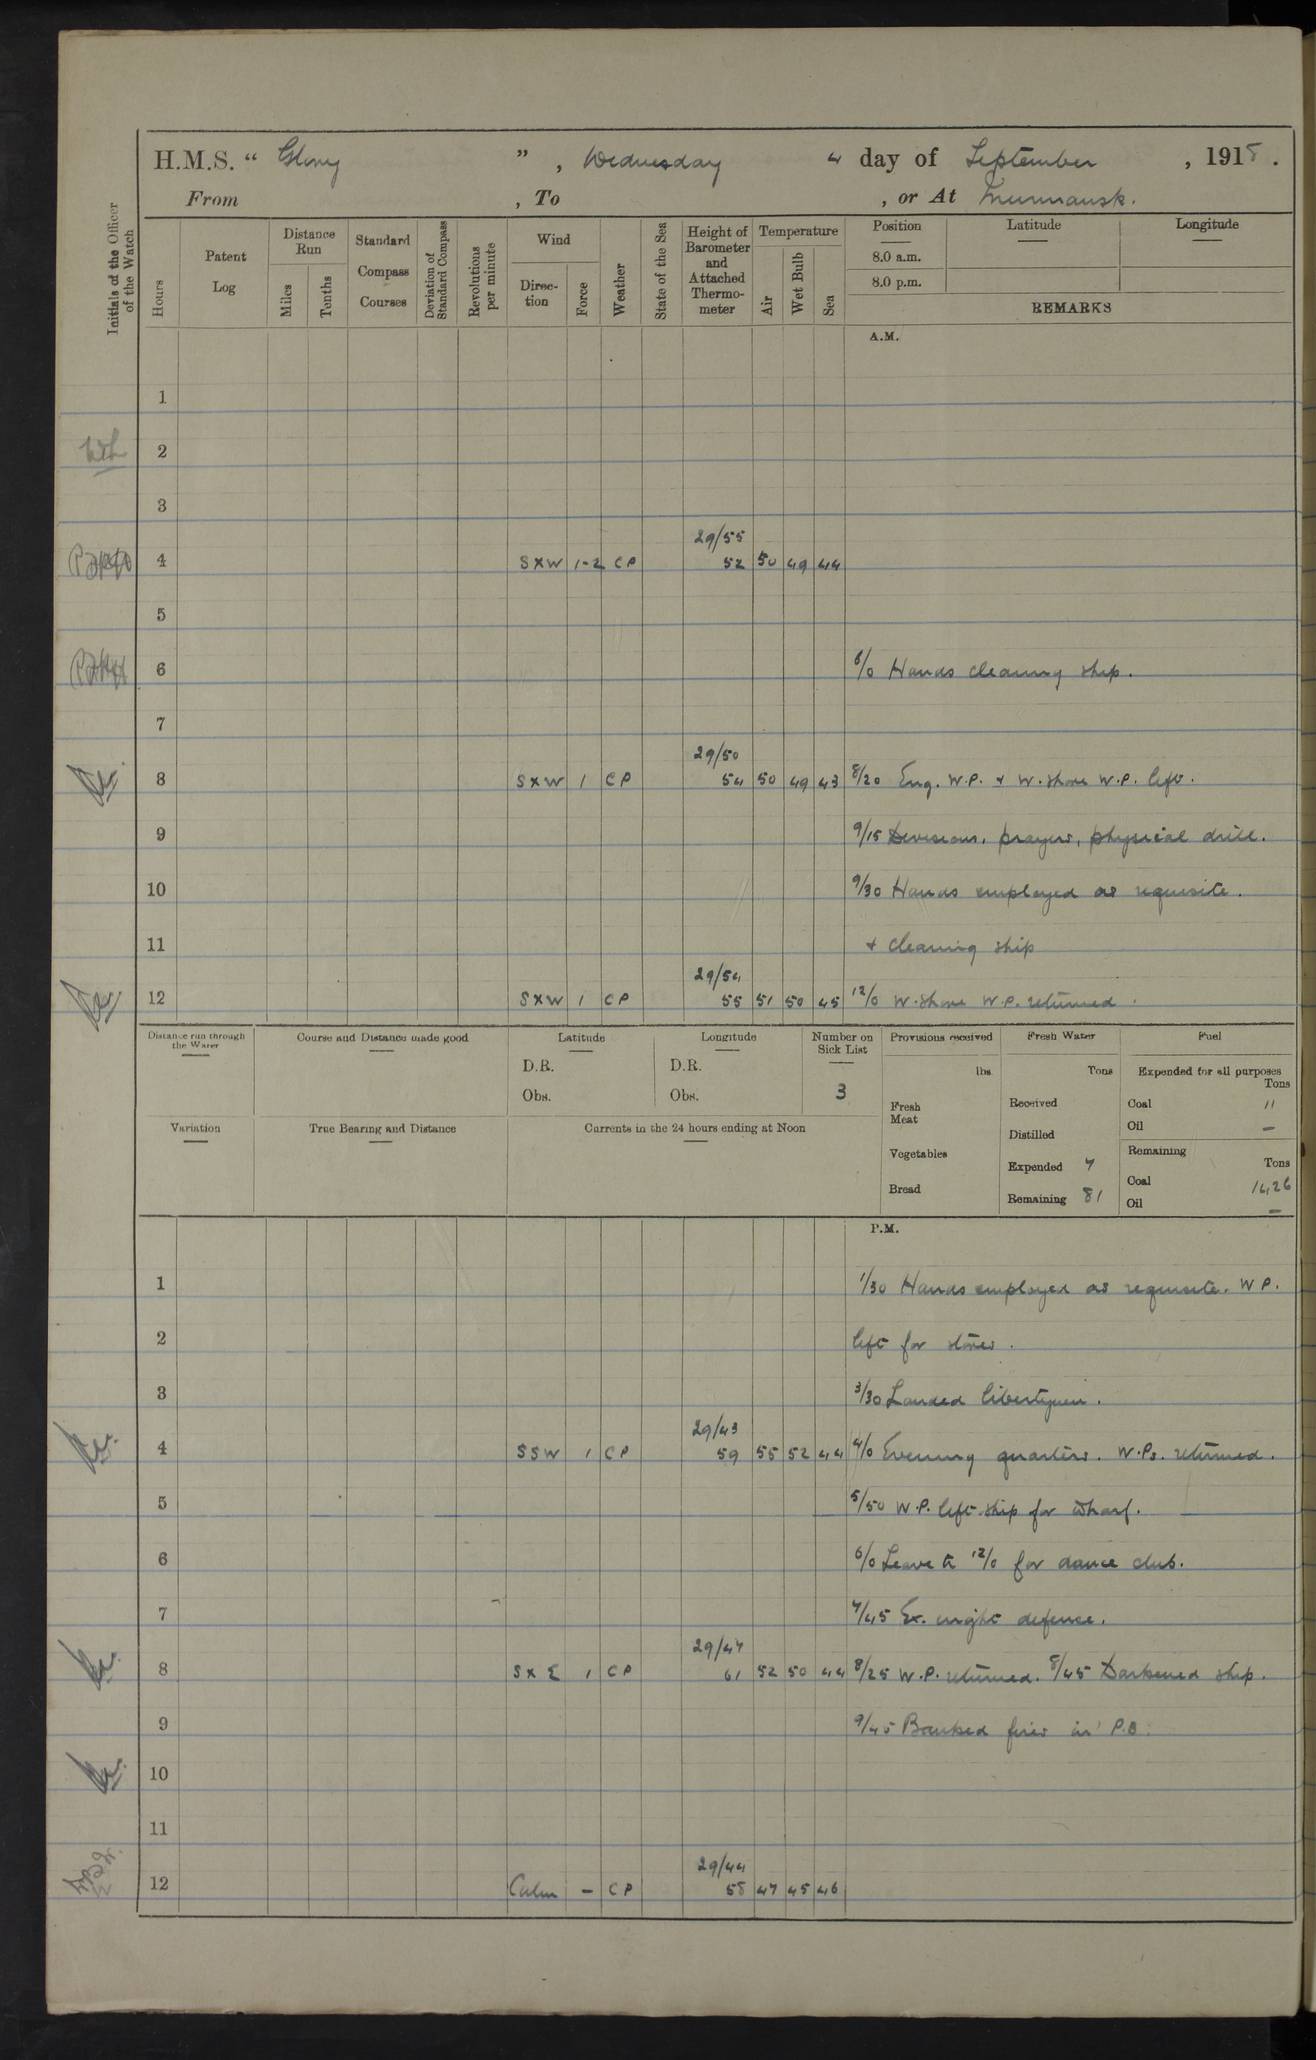 H.M.S. “ Glory ” , Wednesday 4 day of September , 1918 .
From , To , or At Murmansk.
Initials of the Officer of the Watch
Hours
Patent Log
Distance Run
Miles
Tenths
Standard Compass Courses
Deviation of Standard Compass
Revolutions per minute
Wind
Direction
Force
Weather
State of the Sea
Height of Barometer and Attached Thermometer
Temperature
Air
Wet Bulb
Sea
Position Latitude Longitude
8.0 a.m.
8.0 p.m.
REMARKS
A.M.
1
2
3
29/55
4 S×W 1-2 CP 52 50 49 44
5
6 6/0 Hands cleaning ship.
7
29/50
8 S×W 1 CP 54 50 49 43 8/20 Eng. W.P. & W. Shore W.P. left.
9 9/15 Divisions, prayers, physical drill.
10 9/30 Hands employed as requisite.
11 & cleaning ship
29/54
12 S×W 1 CP 55 51 50 45 12/0 W. Shore W.P. returned.
Distance run through the Water
Course and Distance made good
Latitude
D.R.
Obs.
Longitude
D.R.
Obs.
Number on Sick List
3
Provisions received
lbs
Fresh Meat
Vegetables
Bread
Fresh Water
Tons
Received
Distilled
Expended 7
Remaining 81
Fuel
Expended for all purposes
Tons
Coal 11
Oil –
Remaining
Tons
Coal 1426
Oil –
Variation
True Bearing and Distance
Currents in the 24 hours ending at Noon
P.M.
1 1/30 Hands employed as requisite. W P.
2 left for stores.
3 3/30 Landed libertymen.
29/43
4 SSW 1 CP 59 55 52 44 4/0 Evening quarters. W.Ps. returned.
5 5/50 W.P. left ship for wharf.
6 6/0 Leave to 12/0 for dance club.
7 7/45 Ex. night defence.
29/47
8 S×E 1 CP 61 52 50 44 8/25 W.P. returned. 8/45 Darkened ship.
9 9/45 Banked fires in P.B.
10
11
29/44
12 Calm – CP 58 47 45 46